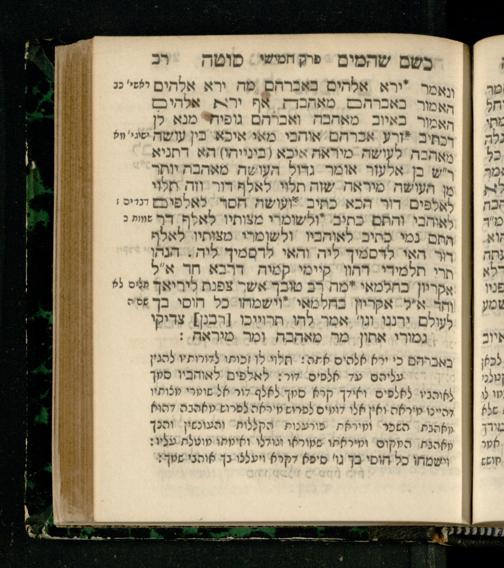 כשם שהמים פרק חמישי סוטה רב
ונאמר *ירא אלהים באברהם מה ירא אלהים ראשי' כב
האמור באברהם מאהבה אף ירא אלהים
האמור באיוב מאהבה ואברהם גופיה מנא לן
דכתיב *זרע אברהם אוהבי מאי איכא בין עושה ישעי' מא
מאהבה לעושה מיראה איכא (בינייהו) הא דתניא
ר"ש בן אלעזר אומר גדול העושה מאהבה יותר
מן העושה מיראה שזה תלוי לאלף דור וזה תלוי
לאלפים דור הכא כתיב *ועושה חסד לאלפים דברים ז
לאוהבי והתם כתיב *ולשומרי מצותיו לאלף דר שמות כ
התם נמי כתיב לאוהביו ולשומרי מצותיו לאלף
דור האי לדסמיך ליה והאי לדסמיך ליה. הנהו
תרי תלמידי דהוו קיימי קמיה דרבא חד א"ל
אקריון בחלמאי *מה רב טובך אשר צפנת ליריאך תלים לא
וחד א"ל אקריון בחלמאי *וישמחו כל חוסי בך שם ה
לעולם ירננו וגו' אמר להו תרוייכו [רבנן] צדיקי
גמורי אתון מר מאהבה ומר מיראה :
באברהם כי ירא אלהים אתה: תלוי לו זכותו לדורותיו להגין
עליהם עד אלפים דור: לאלפים לאוהביו סמך
לאוהביו לאלפים ואידך קרא סמך לאלף דור אל שומרי מצותיו
דהיינו מיראה ואין אלו דומים לפרוש מיראה לפרוש מאהבה דהוא
מאהבת השכר ומיראת פורענות הקללות והעונשין והכך
מאהבת המקום ומיראתו שמוראו וגודלו ואימתו מוטלת עליו:
וישמחו כל חוסי בך גו' סיפא דקרא ויעלצו בך אוהבי שמך: